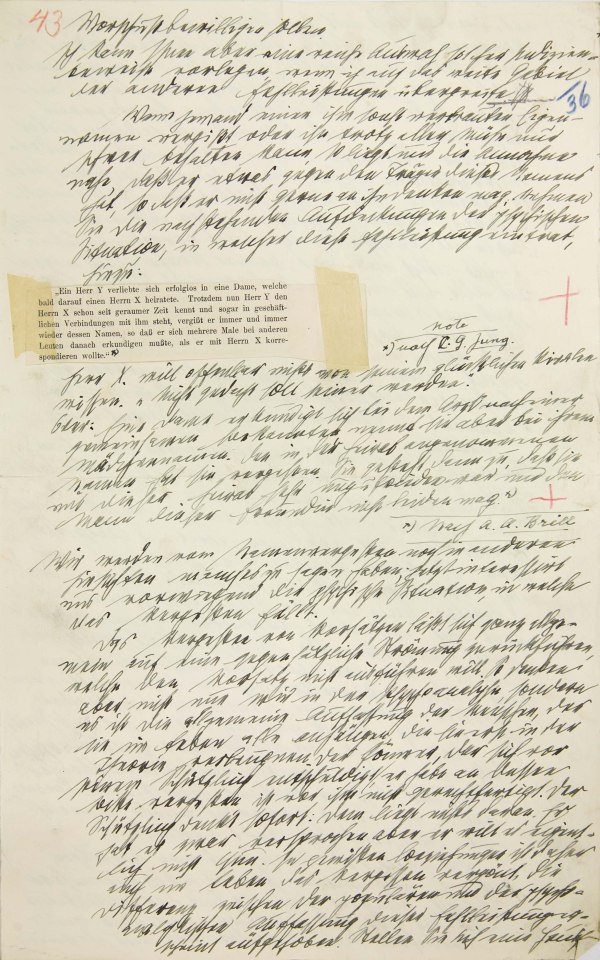 43
Vorschuß bewilligen sollen
Ich kann Ihnen aber eine reiche Auswal solcher Indizien-
beweise vorlegen wenn ich auf das weite Gebiet
der anderen Fehlleistungen übergreife
36
Wenn jemand einen ihm sonst vertrauten Eigen-
namen vergißt oder ihn trotz aller Mühe nur
schwer behalten kann, so liegt uns die Annahme
nahe, daß er etwas gegen den Träger dieses Namens
hat, so daß er nicht gerne an ihn denken mag. Nehmen
Sie die nachstehenden Aufdeckungen der psychischen
Situation, in welcher diese Fehlleistung eintrat,
hinzu:
„Ein Herr Y verliebte sich erfolglos in eine Dame, welche
bald darauf einen Herrn X heiratete. Trotzdem nun Herr Y den
Herrn X schon seit geraumer Zeit kennt und sogar in geschäft-
lichen Verbindungen mit ihm steht, vergißt er immer und immer
wieder dessen Namen, so daß er sich mehrere Male bei anderen
Leuten danach erkundigen mußte, als er mit Herrn X korre-
spondieren wollte.“*)
note
*) nach C. G. Jung.
Herr X. will offenbar nichts von seinem glücklichen Rivalen
wissen. „Nicht gedacht soll seiner werden.
Oder: Eine Dame erkundigt sich bei dem Arzt nach einer
gemeinsamen Bekannten nennt sie aber bei ihrem
Mädchennamen. Den in der Heirat angenommenen
Namen hat sie vergessen. Sie gesteht dann zu, daß sie
mit dieser Heirat sehr unzufrieden war und den
Mann dieser Freundin nicht leiden mag *)
*) Nach A. A. Brill
Wir werden vom Namenvergessen noch in anderen
Hinsichten manches zu sagen haben, jetzt interessirt
uns vorwiegend die psychische Situation in welche
das Vergessen fällt.
Das Vergessen von Vorsätzen läßt sich ganz allge-
mein auf eine gegensätzliche Strömung zurückführen,
welche den Vorsatz nicht ausführen will. So denken
aber nicht nur wir in der Psychoanalyse sondern
es ist die allgemeine Auffassung der Menschen, der
sie im Leben alle anhängen, die sie erst in der
Theorie verleugnen. Der Gönner, der sich vor
seinem Schützling entschuldigt er habe an dessen
Bitte vergessen ist vor ihm nicht gerechtfertigt. Der
Schützling denkt sofort: Dem liegt nichts daran, Er
hat es zwar versprochen aber er will es eigent-
lich nicht tun. In gewissen Beziehungen ist daher
auch im Leben das Vergessen verpönt, die
Differenz zwischen der populären und der psycho-
analytischen Auffassung dieser Fehlleistungen
scheint aufgehoben. Stellen Sie sich eine Haus